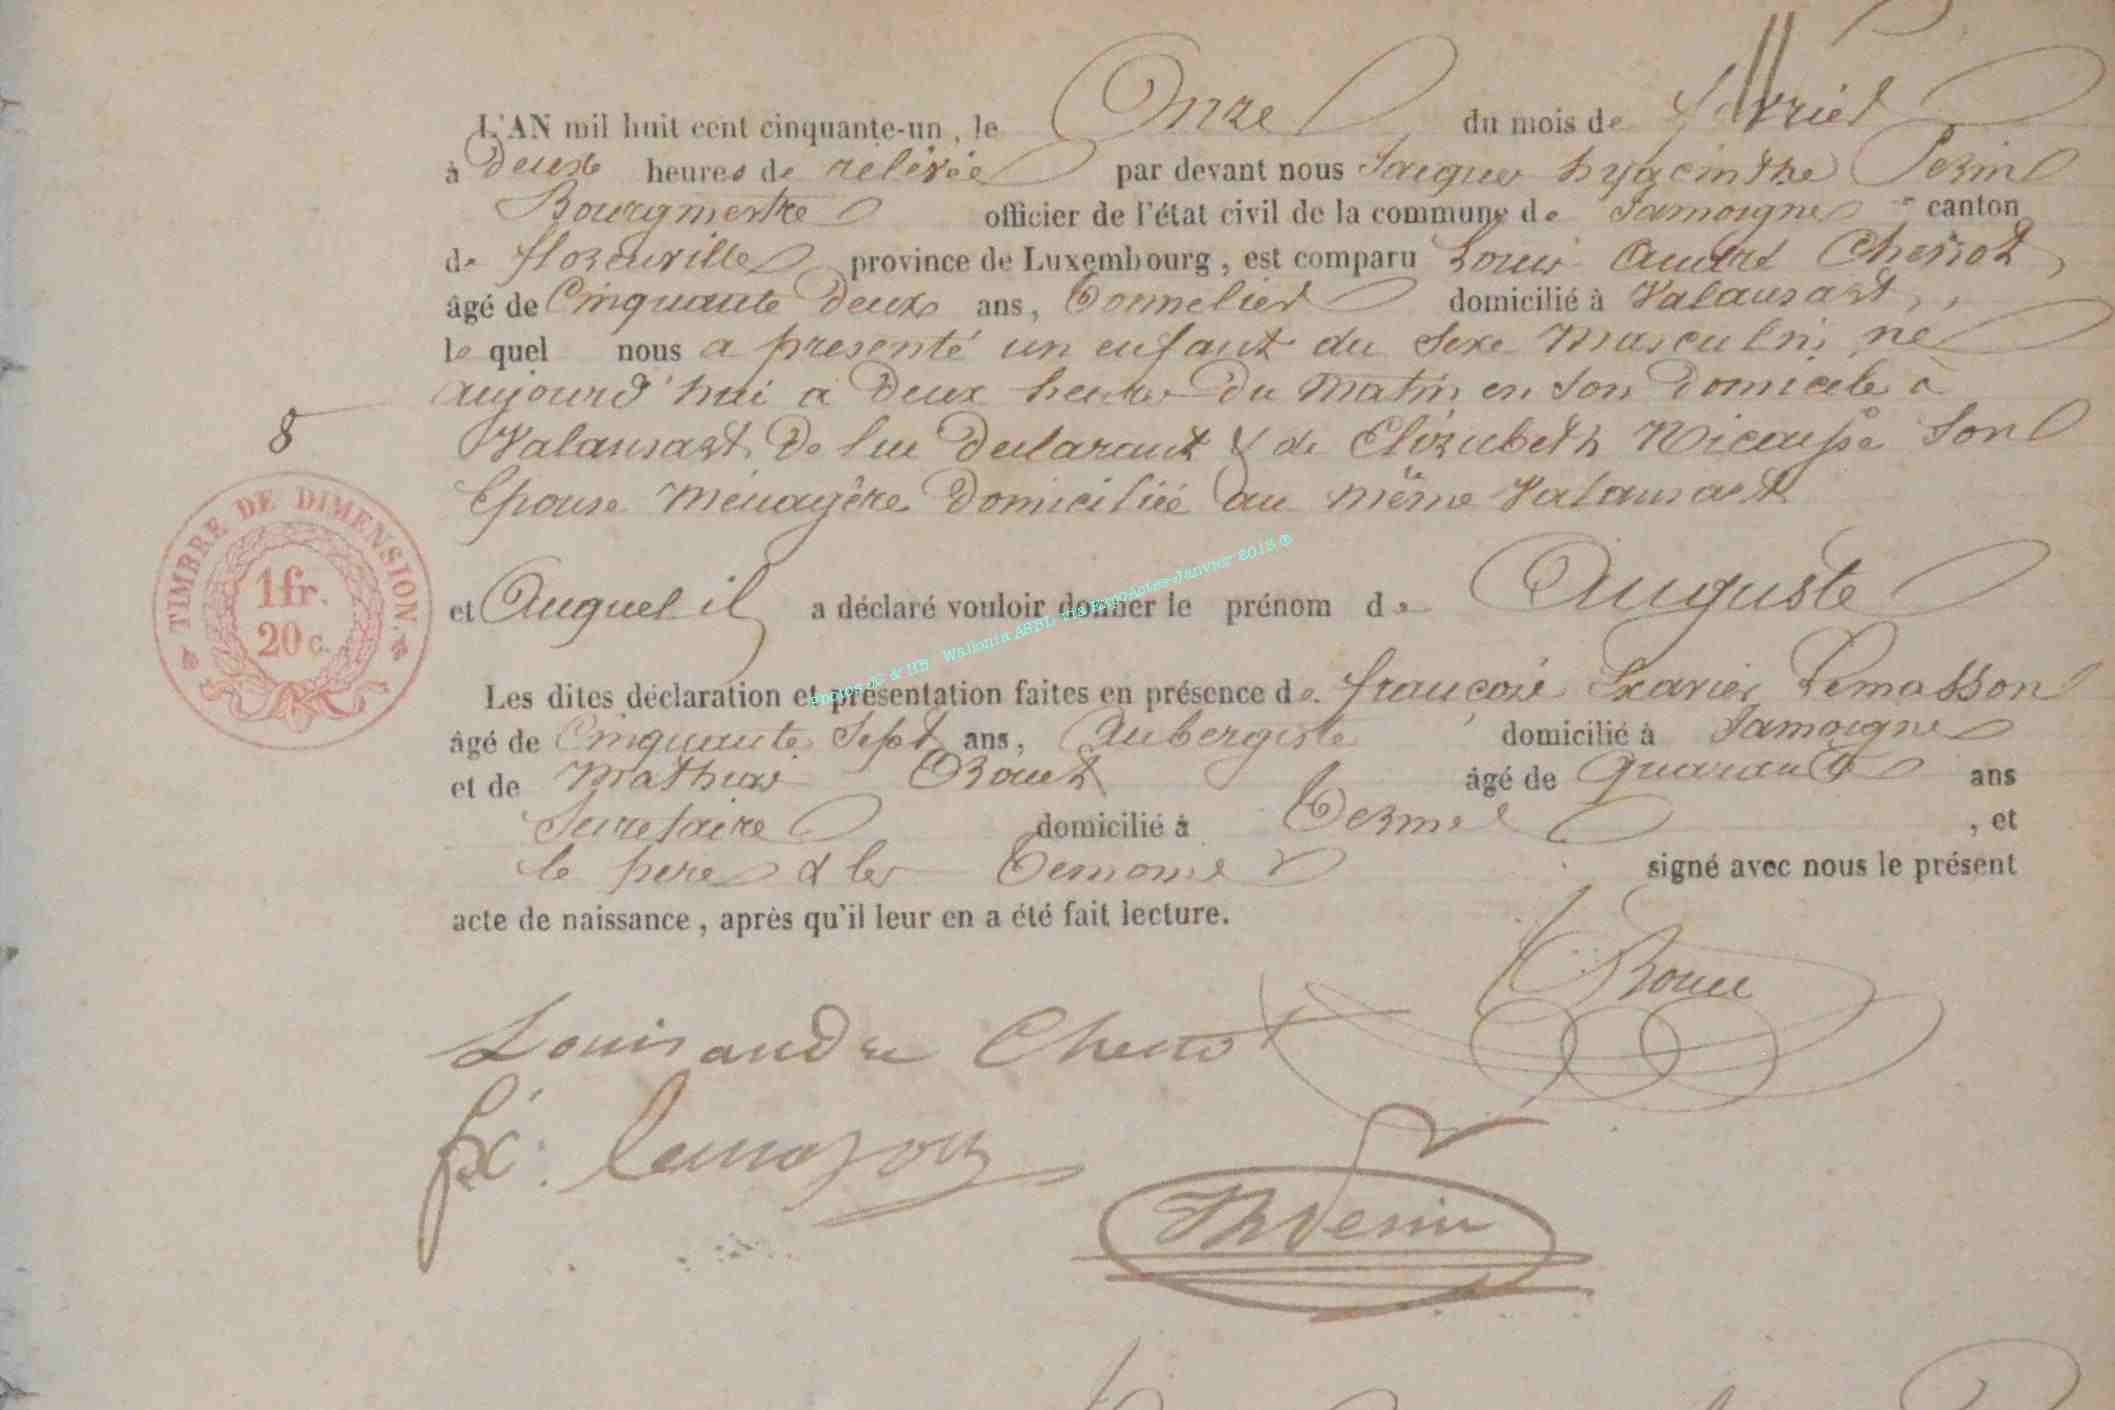 L'AN mil huit cent cinquante-un, le Onze du mois de
à Deux heures de relévée par devant nous Jacques hyacinthe
Bourgmestre officier de l'état civil de la commune de Jamoigne canton
de florenville province de Luxembourg, est comparu Louis André Chenot
âgé de Cinquante Deux ans, Tonnelier domicilié à Valansart,
le quel nous a présenté un enfant du Sexe Masculin, né
aujourd'hui à Deux heures Du Matin en Son Domicile à
Valansart De lui Déclarant & de Elizabeth Nicaisse Son
Epouse Ménagère Domiciliée au même Valansart
8
TIMBRE DE DIMENSION.
1 fr.
20 c.
et Auquel il a déclaré vouloir donner le prénom de Auguste
Photos JF & HB Wallonia ASBL via ExpoActes Janvier 2013 ®
Les dites déclaration et présentation faites en présence de françois Xavier Lemasson
âgé de Cinquante Sept ans, Aubergiste domicilié à Jamoigne
et de Mathieu âgé de Quarante ans
Secretaire domicilié à Termes, et
le père & les Temoins signé avec nous le présent
acte de naissance, après qu'il leur en a été fait lecture.
Louis andre Chenot
fx: lemasson